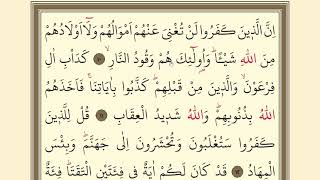 اِنَّ الَّذٖينَ كَفَرُوا لَنْ تُغْنِيَ عَنْهُمْ اَمْوَالُهُمْ وَلَٓا اَوْلَادُهُمْ
مِنَ اللّٰهِ شَيْـًٔاۜ وَاُو۬لٰٓئِكَ هُمْ وَقُودُ النَّارِۙ ﴿١٠﴾ كَدَأْبِ اٰلِ
فِرْعَوْنَۙ وَالَّذٖينَ مِنْ قَبْلِهِمْۜ كَذَّبُوا بِاٰيَاتِنَاۚ فَاَخَذَهُمُ
اللّٰهُ بِذُنُوبِهِمْۜ وَاللّٰهُ شَدٖيدُ الْعِقَابِ ﴿١١﴾ قُلْ لِلَّذٖينَ
كَفَرُوا سَتُغْلَبُونَ وَتُحْشَرُونَ اِلٰى جَهَنَّمَۜ وَبِئْسَ
الْمِهَادُ ﴿١٢﴾ قَدْ كَانَ لَكُمْ اٰيَةٌ فٖي فِئَتَيْنِ الْتَقَتَاۜ فِئَةٌ